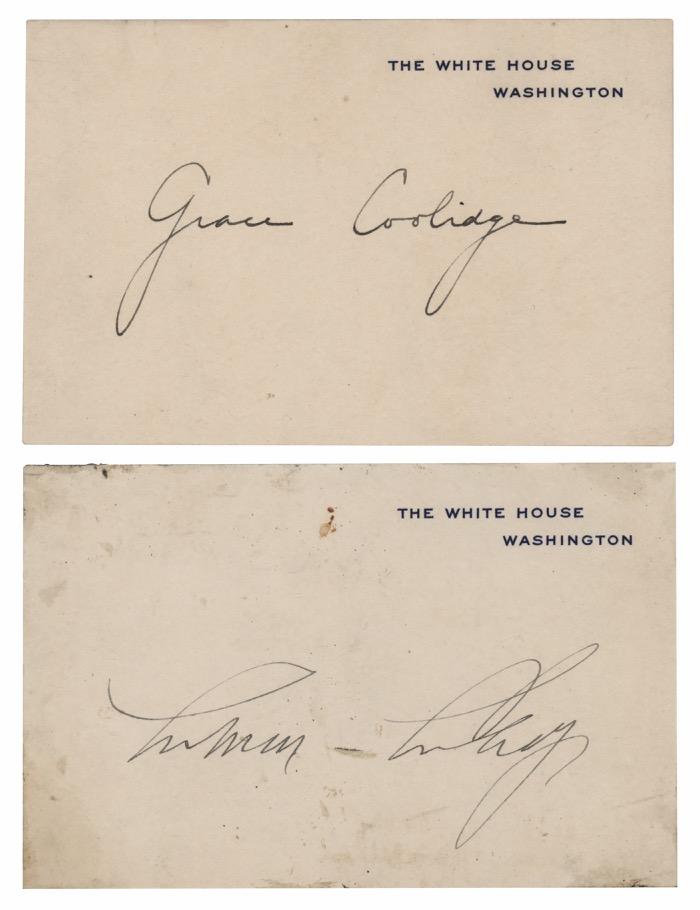 THE WHITE HOUSE
WASHINGTON
Grace Coolidge
THE WHITE HOUSE
WASHINGTON